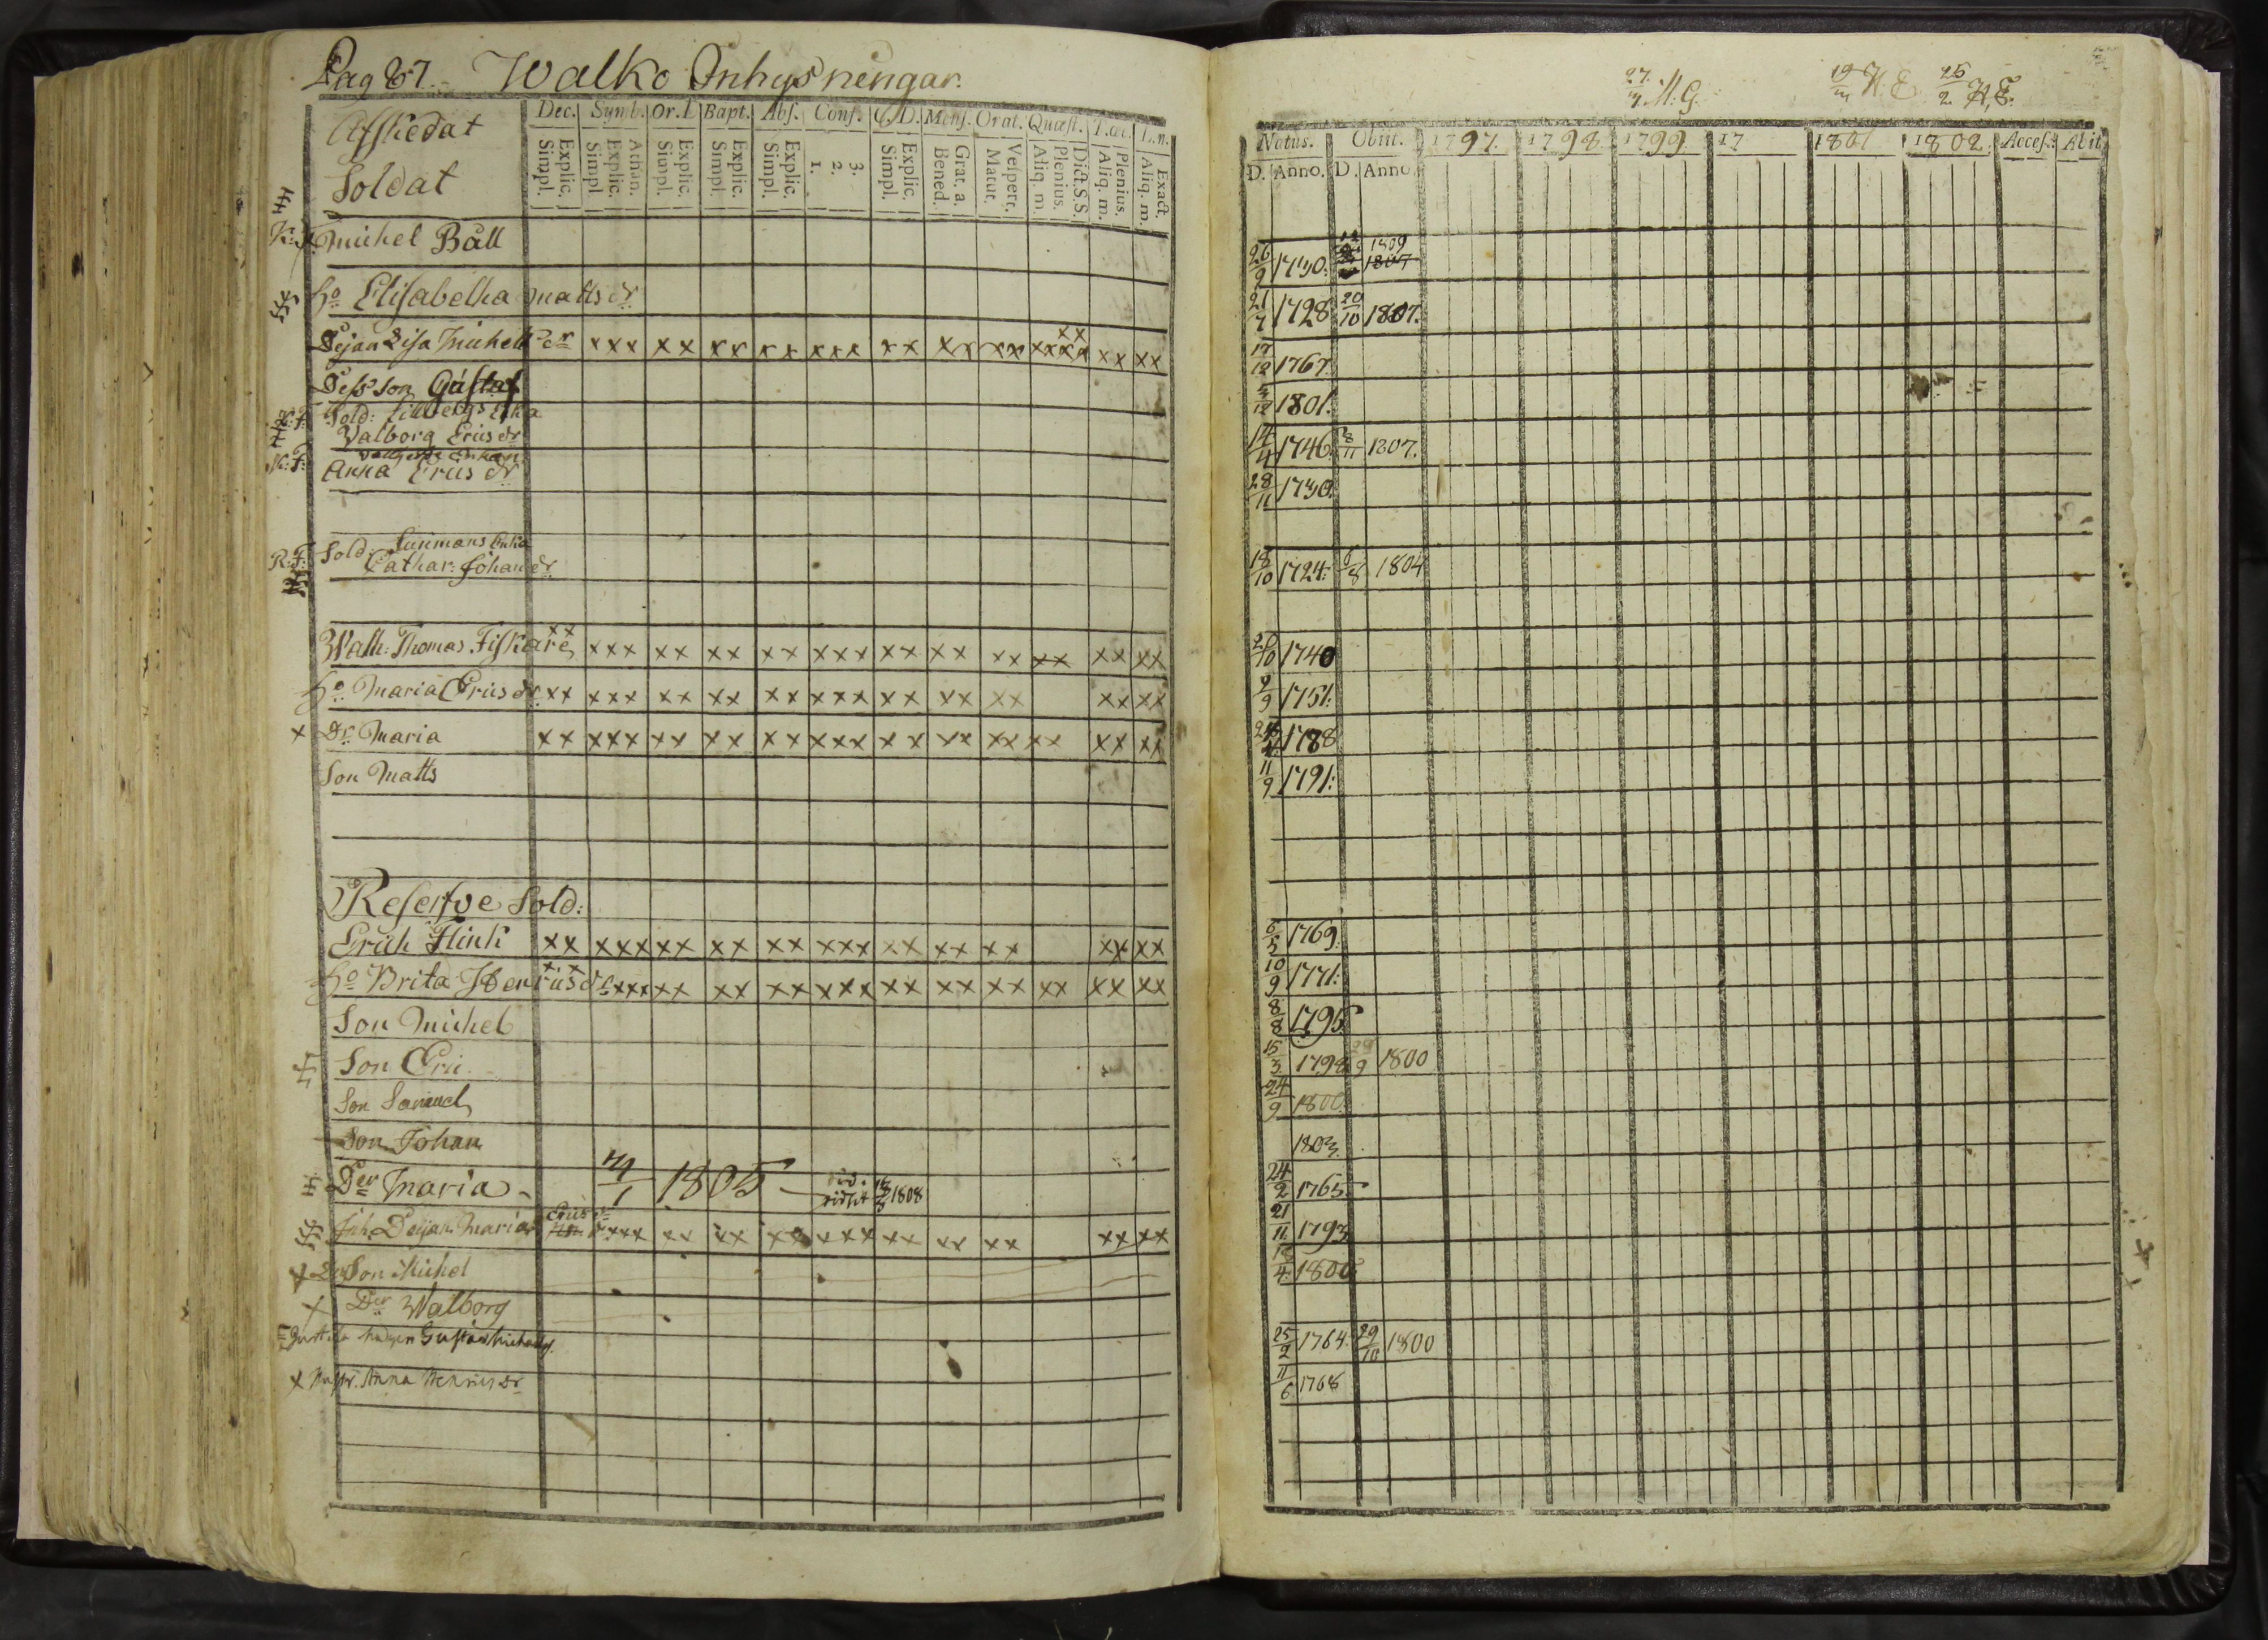 Pag 87. Walko Inhysningar.
Dec. Symb. Or. D. Bapt. Abs. Conf. C. D. Mens. Orat. Quæst. T. œc. L. n.
Explic. Simpl. Athan. Explic. Simpl. Explic. Simpl. Explic. Simpl. Explic. Simpl. 3. 2. 1. Explic. Simpl. Grat. a. Bened. Vespert. Matut. Dict. S. S. Plenius. Aliq. m. Plenius. Aliq. m. Exact. Aliq. m.
Afskedat
Soldat
Michel Båll
ho Elisabetha Matts dr
Pejan Lisa Michels dr xxx xx xx xx xxx xx xx xx xxxx xx xx xx
Dess son Gustaf
Sold: Enka
Walborg Erics dr
Anna Erics dr
R: F: Sold. Enka
Cathar: Johan dr
Wallh: Thomas Fiskare xx xxx xx xx xx xxx xx xx xx xx xx xx
ho Maria Erics dr xx xxx xx xx xx xxx xx xx xx xx xx
x Dr Maria xx xxx xx xx xx xxx xx xx xx xx xx xx
Son Matts
Reserfve Sold:
Erich Flink xx xxx xx xx xx xxx xx xx xx xx xx
ho Brita Henrics dr xx xxx xx xx xx xxx xx xx xx xx xx xx
Son Michel
Son Eric
Son Samuel
Son Johan
Der Maria 1805 1808
Inh. Pejan Maria Erics dr xxx xx xx xx xxx xx xx xx xx xx
x Son Michel
x Der Walborg
Gustaf Michels
x Anna Henrics dr
27/3 M. G. 19/3 H. E. 25/2 H. E.
Natus. Obiit. 1797. 1798. 1799. 17 1801 1802. Acces. Abiit
D. Anno. D. Anno.
26/9 1730. 1809 1807
21/7 1728 20/10 1807.
17/12 1767.
5/12 1801.
14/4 1746. 8/11 1807.
28/11 1730.
18/10 1724. 6/8 1804
20/10 1740
9/9 1751.
1788
11/9 1791.
6/5 1769.
10/9 1771.
8/8 1795.
15/3 1798 29/9 1800
24/9 1800.
1803.
24/2 1765.
21/11 1793
1800
25/2 1764. 29/10 1800
11/6 1768